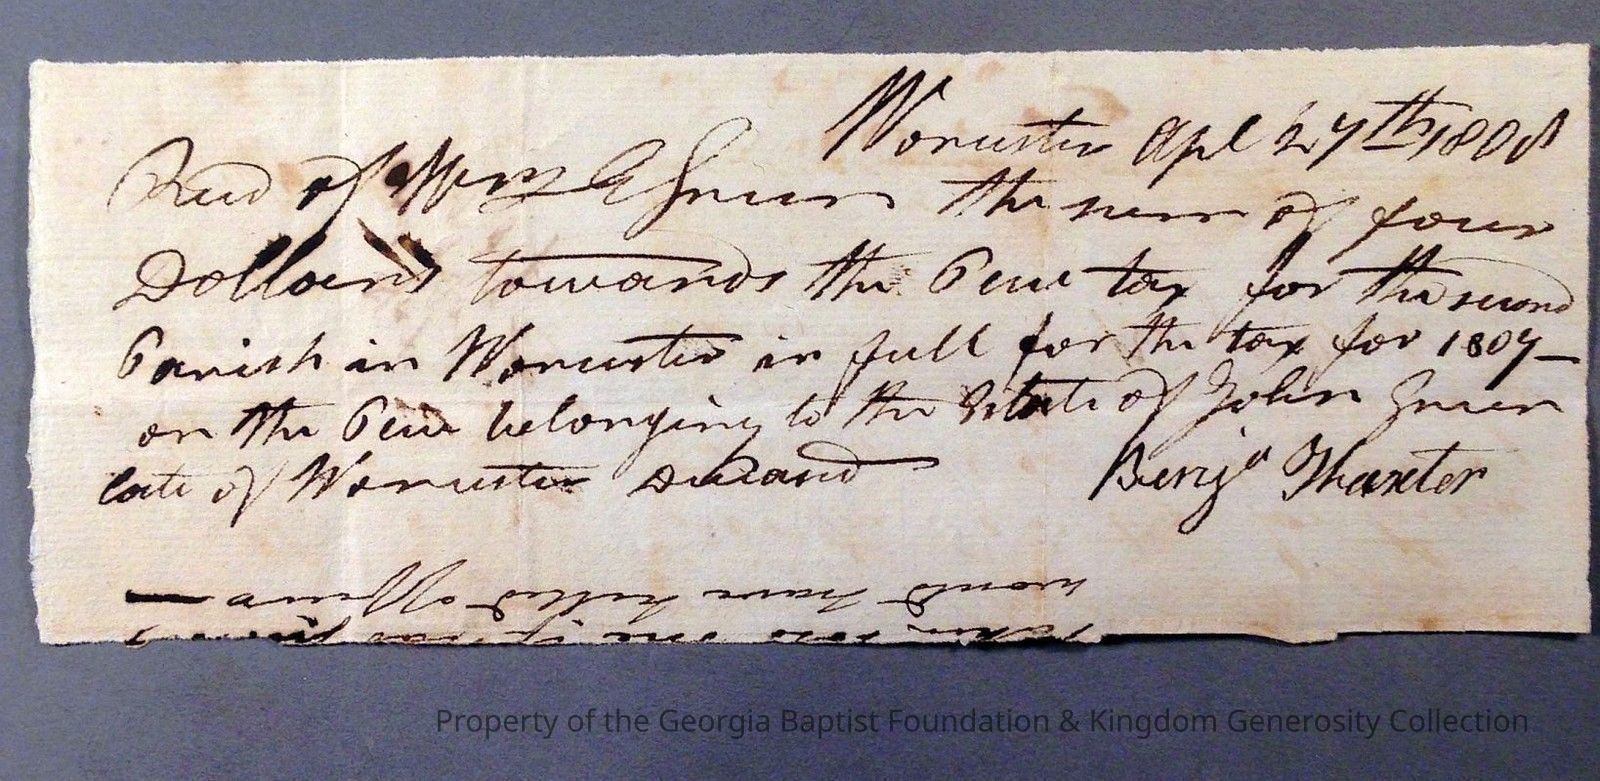 Worcester Apl 27th 1808
Recd of Wm E Green the sum of four
Dollars towards the Pew tax for the second
Parish in Worcester in full for the tax for 1807—
on the Pew belonging to the Estate of John Green
late of Worcester Deceasd
Benja Thaxter
would have killed
Property of the Georgia Baptist Foundation & Kingdom Generosity Collection